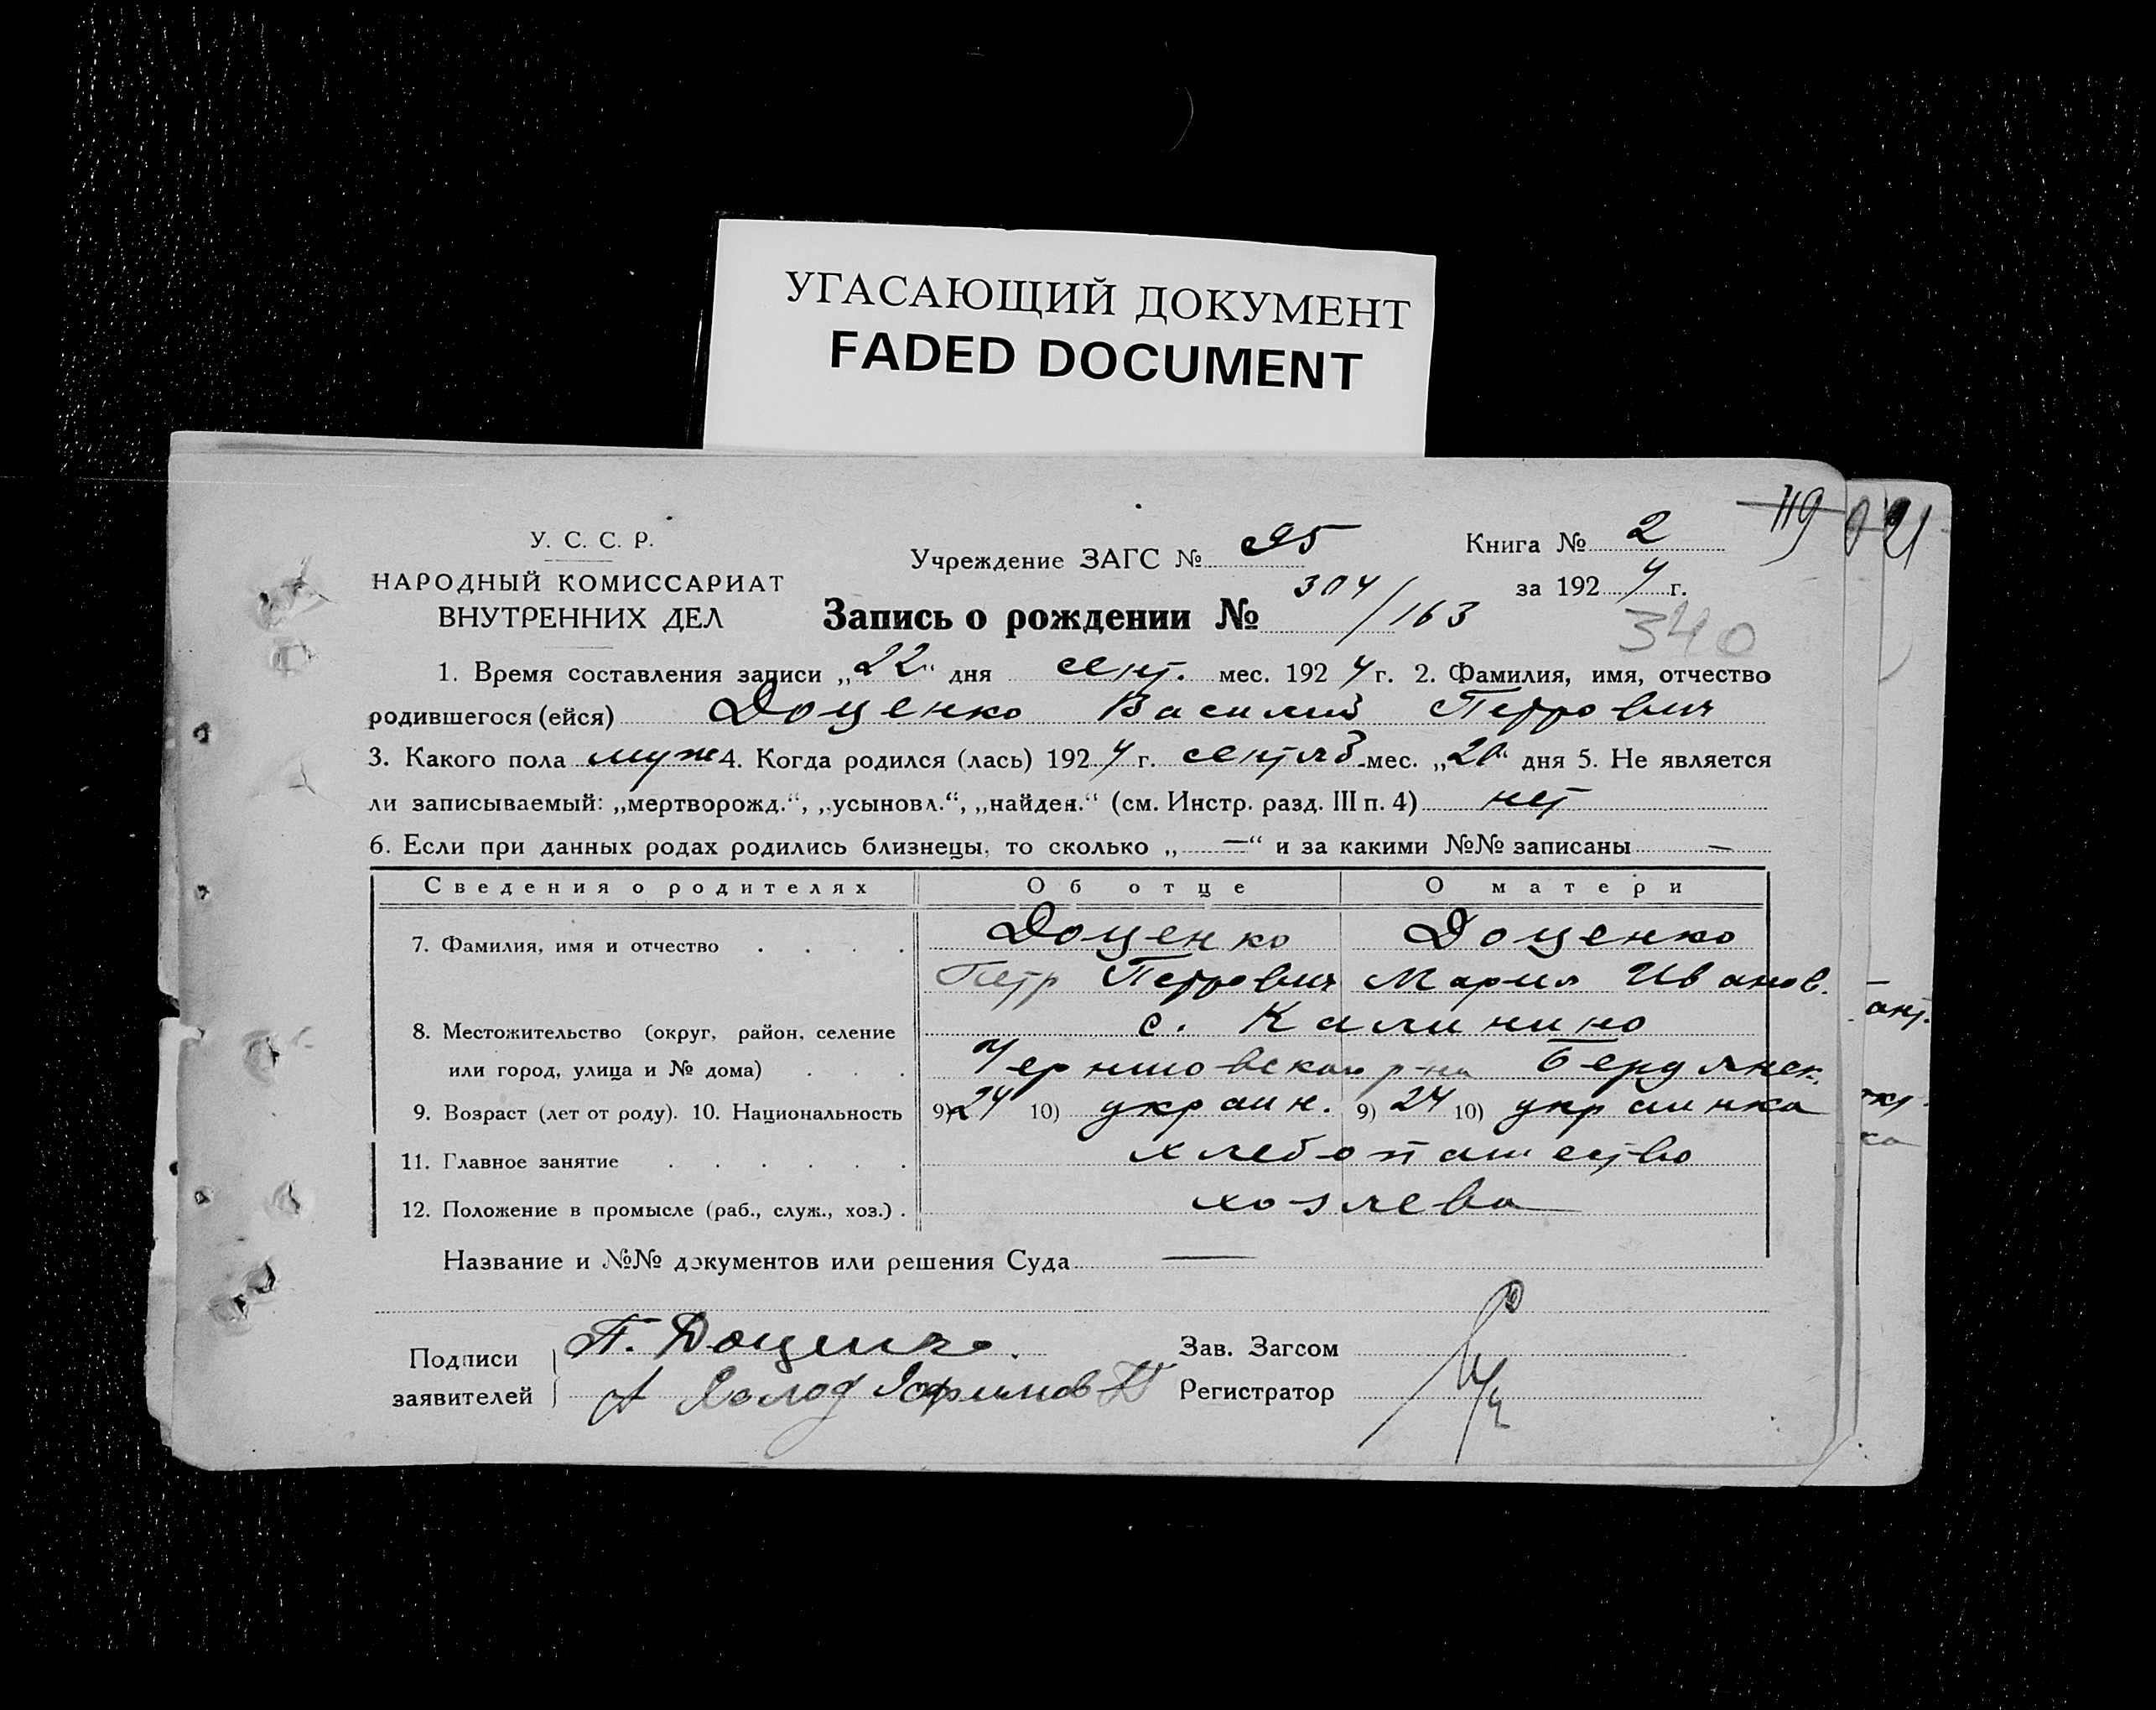 УГАСАЮЩИЙ ДОКУМЕНТ
FADED DOCUMENT
119
21
У. С. С. Р.
НАРОДНЫЙ КОМИССАРИАТ
ВНУТРЕННИХ ДЕЛ
Учреждение ЗАГС № 95
Книга № 2
за 1924 г.
Запись о рождении № 304/163
340
1. Время составления записи „22“ дня сент. мес. 1924 г. 2. Фамилия, имя, отчество
родившегося (ейся) Доценко Василий Петрович
3. Какого пола муж 4. Когда родился (лась) 1924 г. сентяб. мес. „20“ дня 5. Не является
ли записываемый: „мертворожд.“, „усыновл.“, „найден.“ (см. Инстр. разд. III п. 4) нет
6. Если при данных родах родились близнецы, то сколько „—“ и за какими №№ записаны —
Сведения о родителях Об отце О матери
7. Фамилия, имя и отчество . . . . Доценко Доценко
Петр Петрович Мария Иванов.
8. Местожительство (округ, район, селение с. Калинино
или город, улица и № дома) . . . Черниговского р-на Бердянск.
9. Возраст (лет от роду). 10. Национальность 9) 24 10) украин. 9) 24 10) украинка
11. Главное занятие . . . . . . хлебопашество
12. Положение в промысле (раб., служ., хоз.) . хозяева
Название и №№ документов или решения Суда —
Подписи П. Доценко. Зав. Загсом
заявителей Холод Регистратор